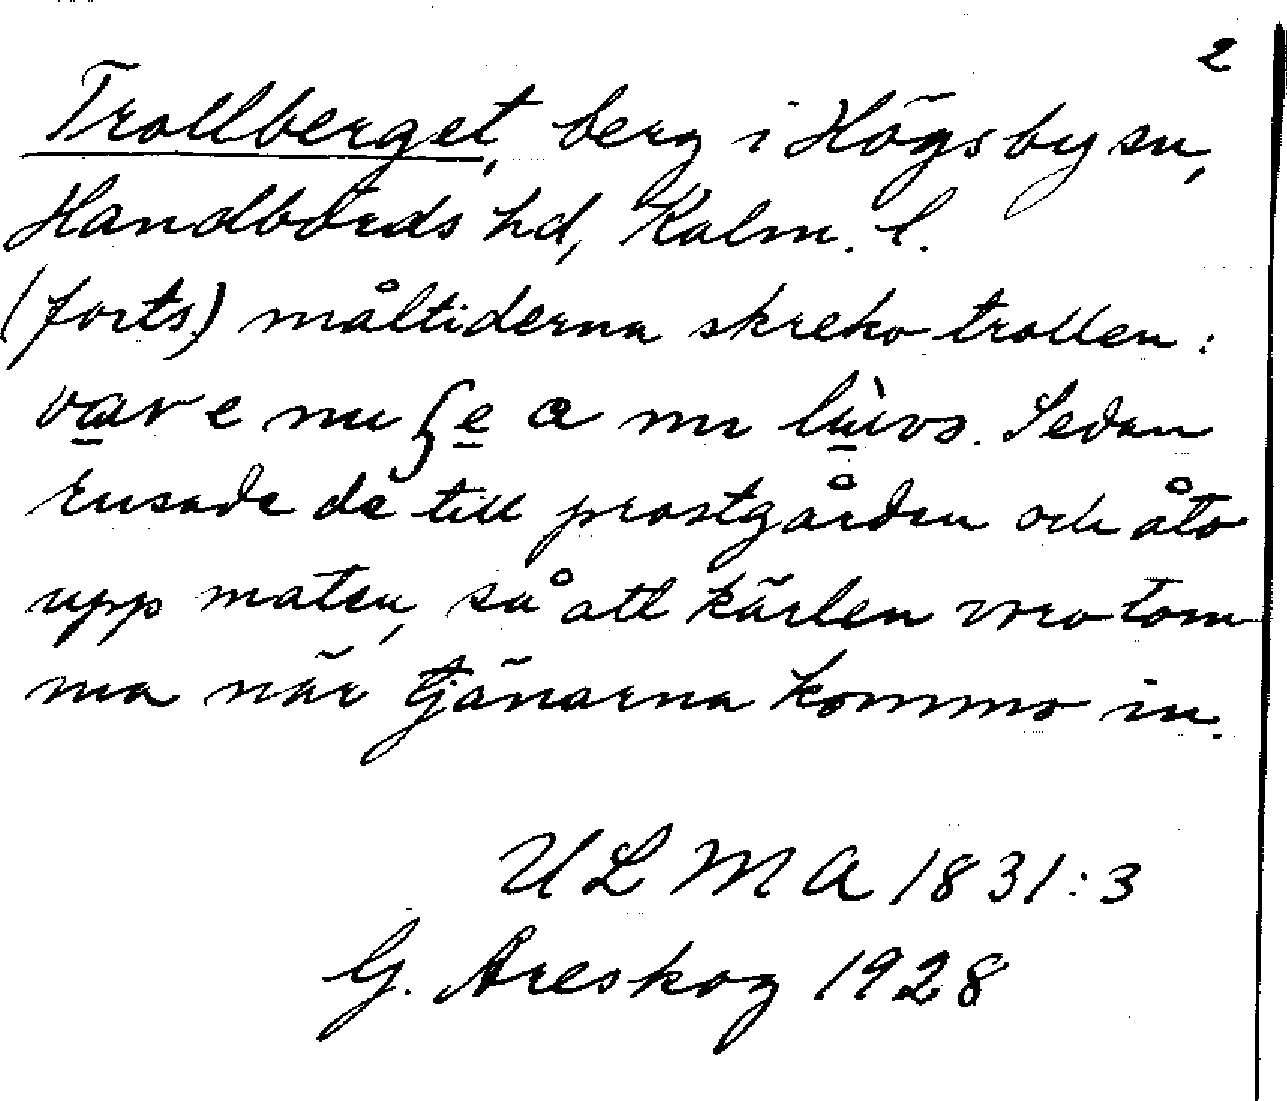 2
Trollberget, berg i Högsby sn,
Handbörds hd, Kalm. l.
(forts.) måltiderna skreko trollen:
var e nu ʃe a nu
Sedan
rusade de till prostgården och åto
upp maten, så att kärlen voro tom-
ma när tjänarna kommo in.
ULMA 1831:3
G. Areskog 1928